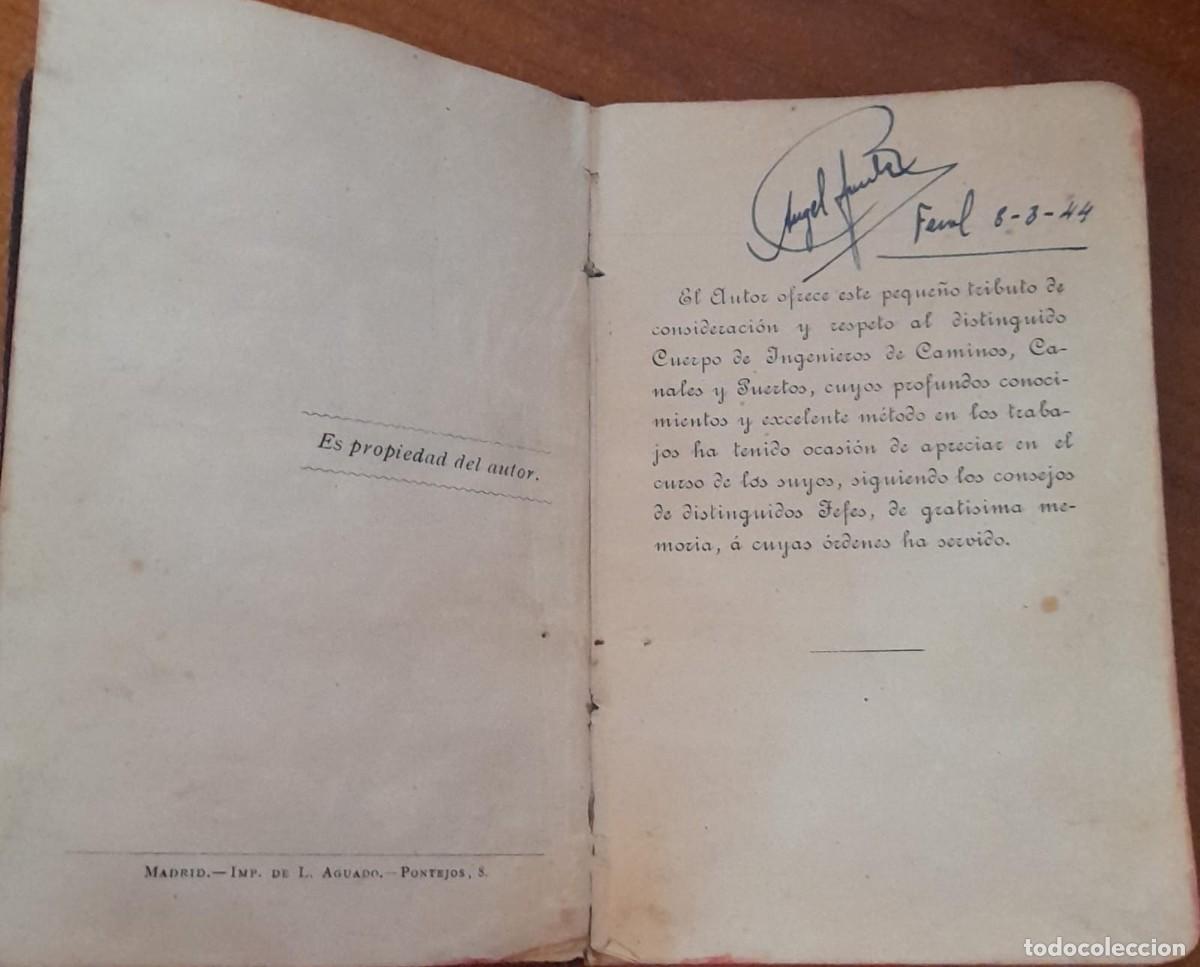 Es propiedad del autor.
MADRID.—IMP. DE L. AGUADO.—PONTEJOS, 8.
Angel
8-3-44
El Autor ofrece este pequeño tributo de
consideración y respeto al distinguido
Cuerpo de Ingenieros de Caminos, Ca-
nales y Puertos, cuyos profundos conoci-
mientos y excelente método en los traba-
jos ha tenido ocasión de apreciar en el
curso de los suyos, siguiendo los consejos
de distinguidos Jefes, de gratisima me-
moria, á cuyas órdenes ha servido.
todocoleccion